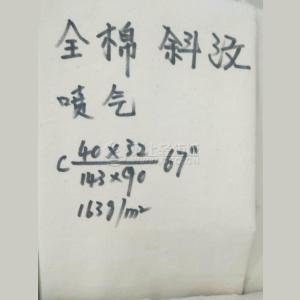 全棉 斜汶
喷气
C 40×32 67"
143×90
163g/m²